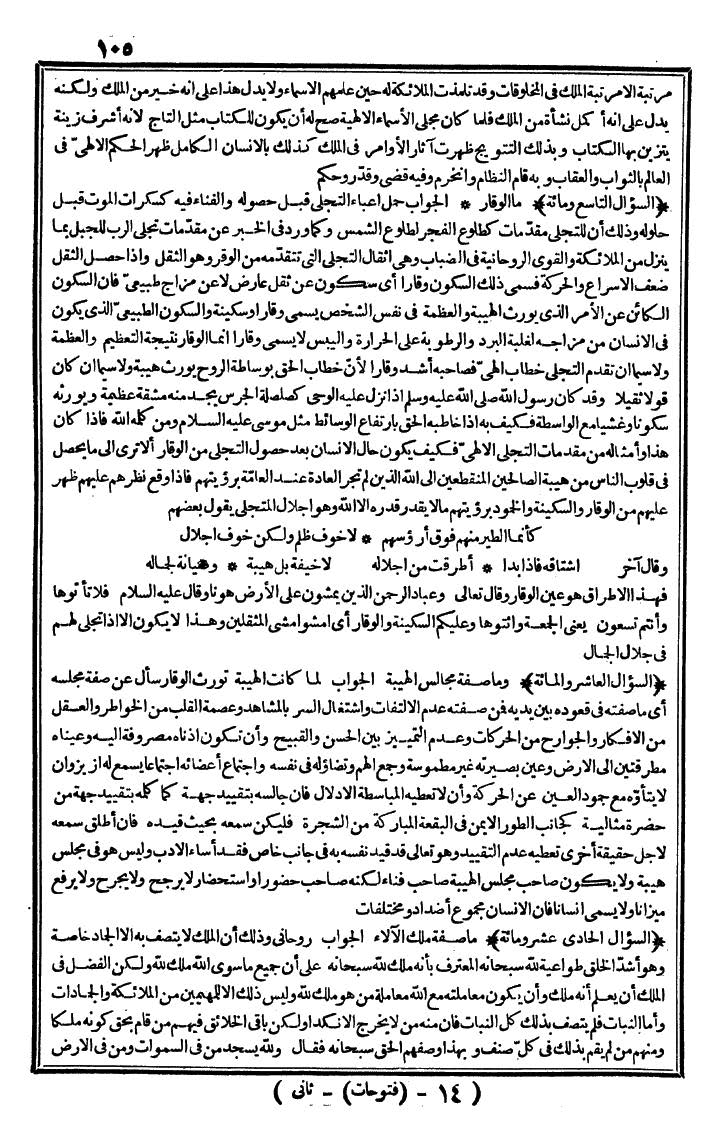 ١٠٥
مرتبة الامرتبة الملك فى المخلوقات وقد تلمذت الملائكة له حين علمهم الاسماء ولا يدل هذا على انه خير من الملك ولكنه
يدل على انه أ كمل نشأة من الملك فلما كان مجلى الأسماء الالهية صح له أن يكون للكتاب مثل التاج لانه أشرف زينة
يتزين بها الكتاب وبذلك التتويج ظهرت آثار الأوامر فى الملك كذلك بالانسان الكامل ظهر الحكم الالهىّ فى
العالم بالثواب والعقاب وبه قام النظام وانخرم وفيه قضى وقدر وحكم
﴿السؤال التاسع ومائة﴾ ما الوقار * الجواب حمل اعباء التجلى قبل حصوله والفناء فيه كسكرات الموت قبل
حلوله وذلك أن للتجلى مقدّمات كطلوع الفجر لطلوع الشمس وكما ورد فى الخبر عن مقدّمات تجلى الرب للجبل بما
ينزل من الملائكة والقوى الروحانية فى الضباب وهى اثقال التجلى التى تتقدّمه من الوقر وهو الثقل واذا حصل الثقل
ضعف الاسراع والحركة فسمى ذلك السكون وقارا أى سكون عن ثقل عارض لا عن مزاج طبيعىّ فان السكون
الكائن عن الأمر الذى يورث الهيبة والعظمة فى نفس الشخص يسمى وقارا وسكينة والسكون الطبيعىّ الذى يكون
فى الانسان من مزاجه لغلبة البرد والرطوبة على الحرارة واليبس لا يسمى وقارا انما الوقار نتيجة التعظيم والعظمة
ولا سيما ان تقدم التجلى خطاب الهىّ فصاحبه أشد وقارا لأنّ خطاب الحق بوساطة الروح يورث هيبة ولا سيما ان كان
قولا ثقيلا وقد كان رسول الله صلى الله عليه وسلم اذا نزل عليه الوحى كصلصلة الجرس يجد منه مشقة عظيمة ويورثه
سكونا وغشيا مع الواسطة فكيف به اذا خاطبه الحق بارتفاع الوسائط مثل موسى عليه السلام ومن كلمه الله فاذا كان
هذا وأمثاله من مقدمات التجلى الالهىّ فكيف يكون حال الانسان بعد حصول التجلى من الوقار ألا ترى الى ما يحصل
فى قلوب الناس من هيبة الصالحين المنقطعين الى الله الذين لم تجر العادة عند العامّة برؤيتهم فاذا وقع نظرهم عليهم ظهر
عليهم من الوقار والسكينة والخمود برؤيتهم ما لا يقدر قدره الا الله وهو اجلال المتجلى يقول بعضهم
كأنما الطير منهم فوق أرؤسهم * لا خوف ظلم ولكن خوف اجلال
وقال آخر اشتاقه فاذا بدا * أطرقت من اجلاله لا خيفة بل هيبة * وصيانة لجماله
فهذا الاطراق هو عين الوقار وقال تعالى وعباد الرحمن الذين يمشون على الأرض هونا وقال عليه السلام فلا تأتوها
وأنتم تسعون يعنى الجمعة وائتوها وعليكم السكينة والوقار أى امشوا مشى المثقلين وهذا لا يكون الا اذا تجلى لهم
فى جلال الجمال
﴿السؤال العاشر والمائة﴾ وما صفة مجالس الهيبة الجواب لما كانت الهيبة تورث الوقار سأل عن صفة مجلسه
أى ما صفته فى قعوده بين يديه فمن صفته عدم الالتفات واشتغال السر بالمشاهد وعصمة القلب من الخواطر والعقل
من الافكار والجوارح من الحركات وعدم التمييز بين الحسن والقبيح وأن تكون اذناه مصروفة اليه وعيناه
مطرقتين الى الارض وعين بصيرته غير مطموسة وجمع الهم وتضاؤله فى نفسه واجتماع أعضائه اجتماعا يسمع له ازيز وان
لا يتأوّه مع جمود العين عن الحركة وأن لا تعطيه المباسطة الادلال فان جالسه بتقييد جهة كما كلمه بتقييد جهة من
حضرة مثالية كجانب الطور الايمن فى البقعة المباركة من الشجرة فليكن سمعه بحيث قيده فان أطلق سمعه
لاجل حقيقة أخرى تعطيه عدم التقييد وهو تعالى قد قيد نفسه به فى جانب خاص فقد أساء الادب وليس هو فى مجلس
هيبة ولا يكون صاحب مجلس الهيبة صاحب فناء لكنه صاحب حضور واستحضار لا يرجح ولا يجرح ولا يرفع
ميزانا ولا يسمى انسانا فان الانسان مجموع أضداد ومختلفات
﴿السؤال الحادى عشر ومائة﴾ ما صفة ملك الآلاء الجواب روحانى وذلك أن الملك لا يتصف به الا الجماد خاصة
وهو أشدّ الخلق طواعية لله سبحانه المعترف بأنه ملك لله سبحانه على أن جميع ما سوى الله ملك لله ولكن الفضل فى
الملك أن يعلم أنه ملك وأن يكون معاملته مع الله معاملة من هو ملك لله وليس ذلك الا للمهيمين من الملائكة والجمادات
وأما النبات فلم يتصف بذلك كل النبات فان منه من لا يخرج الا نكدا ولكن باقى الخلائق فيهم من قام بحق كونه ملكا
ومنهم من لم يقم بذلك فى كلّ صنف وبهذا وصفهم الحق سبحانه فقال ولله يسجد من فى السموات ومن فى الارض
( ١٤ - (فتوحات) - ثانى )